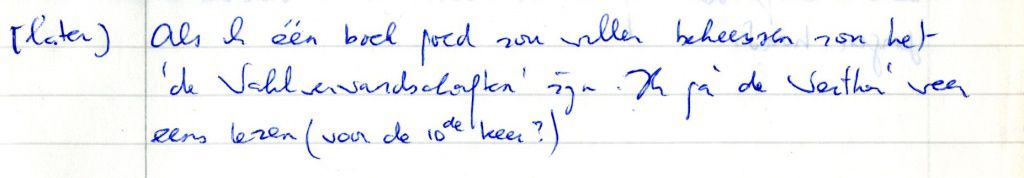 [later] Als ik één boek goed zou willen beheersen zou het
'de Wahlverwandschaften' zijn. Ik ga 'de Werther' weer
eens lezen (voor de 10de keer?)